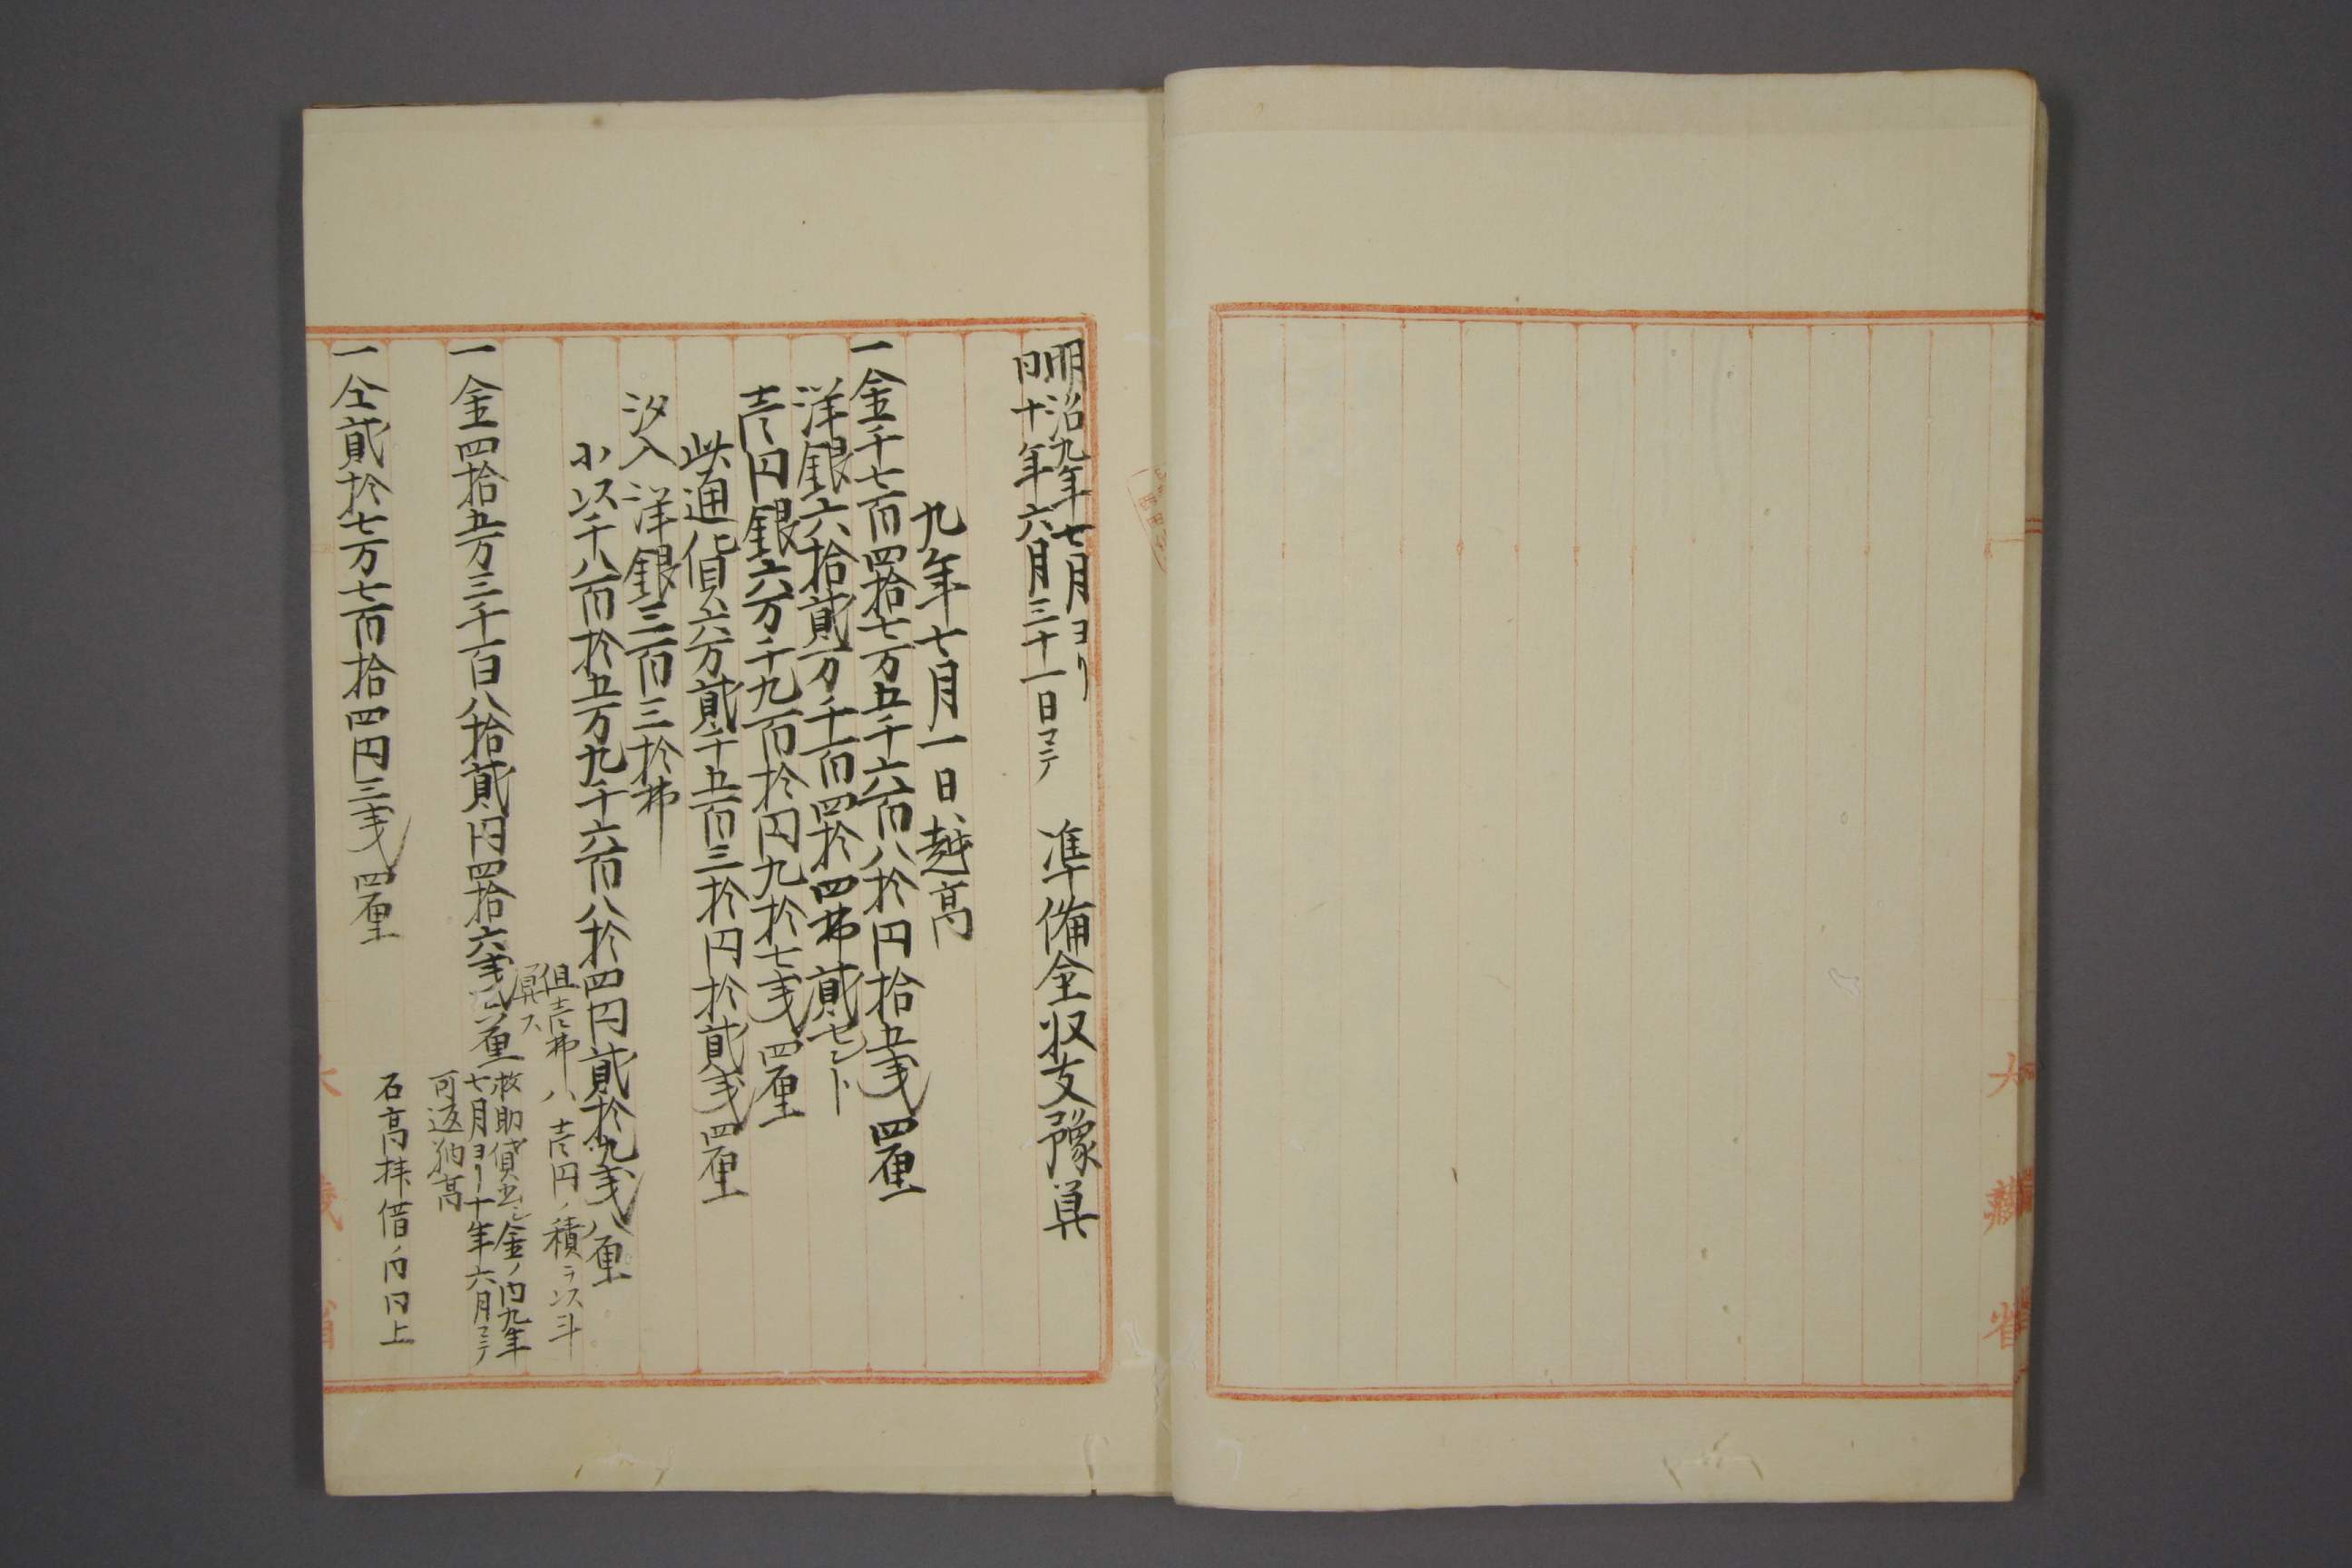 大藏省
明治九年七月ヨリ
同十年六月三十一日マテ
準備金収支豫算
九年七月一日越高
一金千七百四拾七万五千六百八拾円拾五銭四厘
洋銀六拾貳万千百四拾四弗貳セント
壱円銀六万千九百拾円九拾七銭四厘
此通貨六万貳千五百三拾円拾貳銭四厘
汐入洋銀三百三拾弗
小以千八百拾五万九千六百八拾四円貳拾九銭八厘
但壱弗ハ壱円ノ積ヲ以計
算ス
一金四拾五万三千百八拾貳円四拾六銭厘
救助貸出シ金ノ内九年
七月ヨリ十年六月マテ
可返納高
一仝貳拾七万七百拾四円三銭四厘
石高拝借ノ内同上